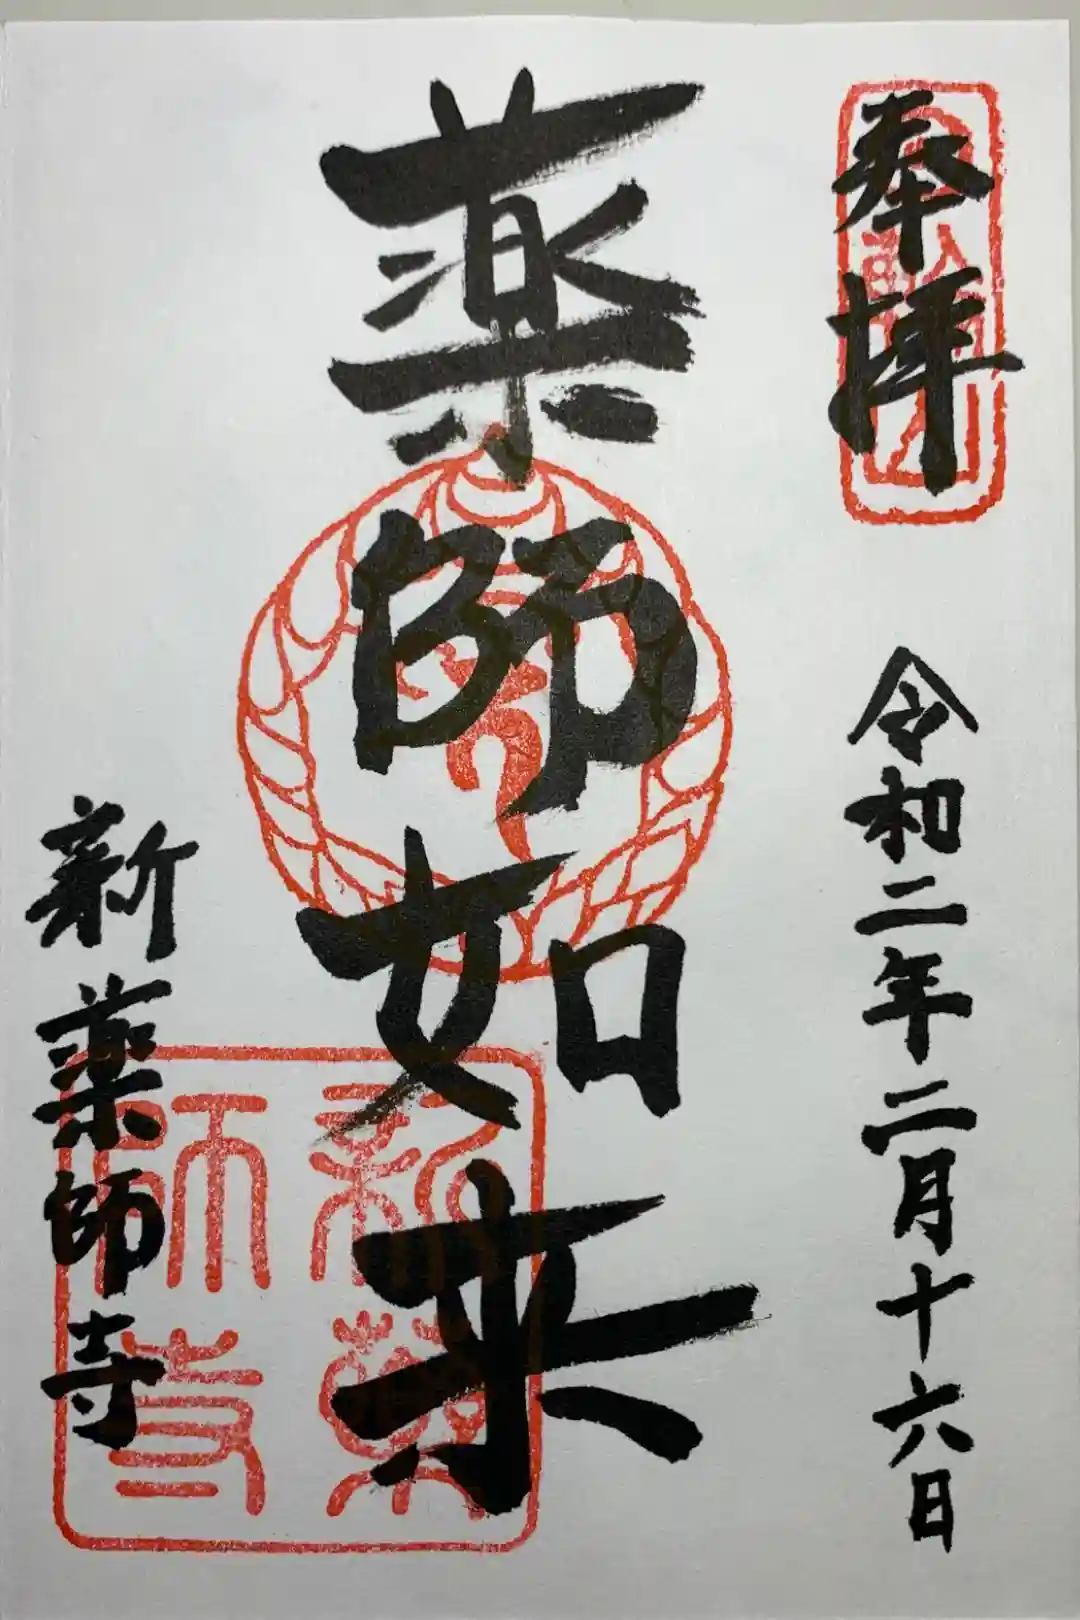 奉拝
令和二年二月十六日
薬師如来
新薬師寺
新薬師寺